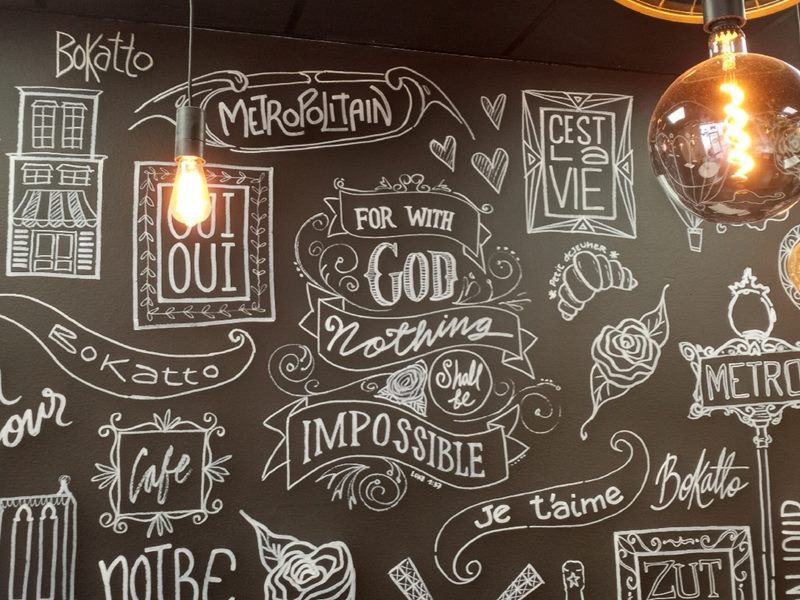 BOKAtto
METROPOLITAIN
C'EST
La
VIE
OUI
OUI
FOR WITH
GOD
Nothing
Shall
be
IMPOSSIBLE
LUKE 1:37
Petit dejeuner
BOKAtto
METRO
our
Cafe
Je t'aime
BOKAtto
NOTRE
ZUT